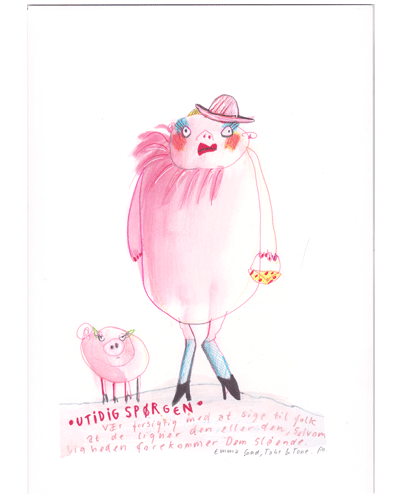 •UTIDIG SPØRGEN•
Vær forsigtig med at sige til folk
at de ligner den eller den, selvom
ligheden forekommer Dem slående.
Emma Gad, Takt & Tone.